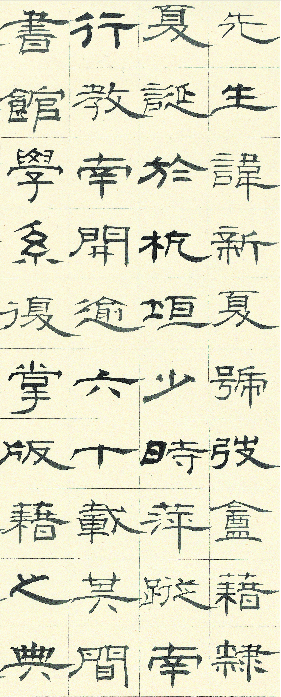 先生諱新夏號弢盦籍隸
夏誕於杭垣少時萍蹤南
行教南開逾六十載其間
書館學系復掌版籍之典